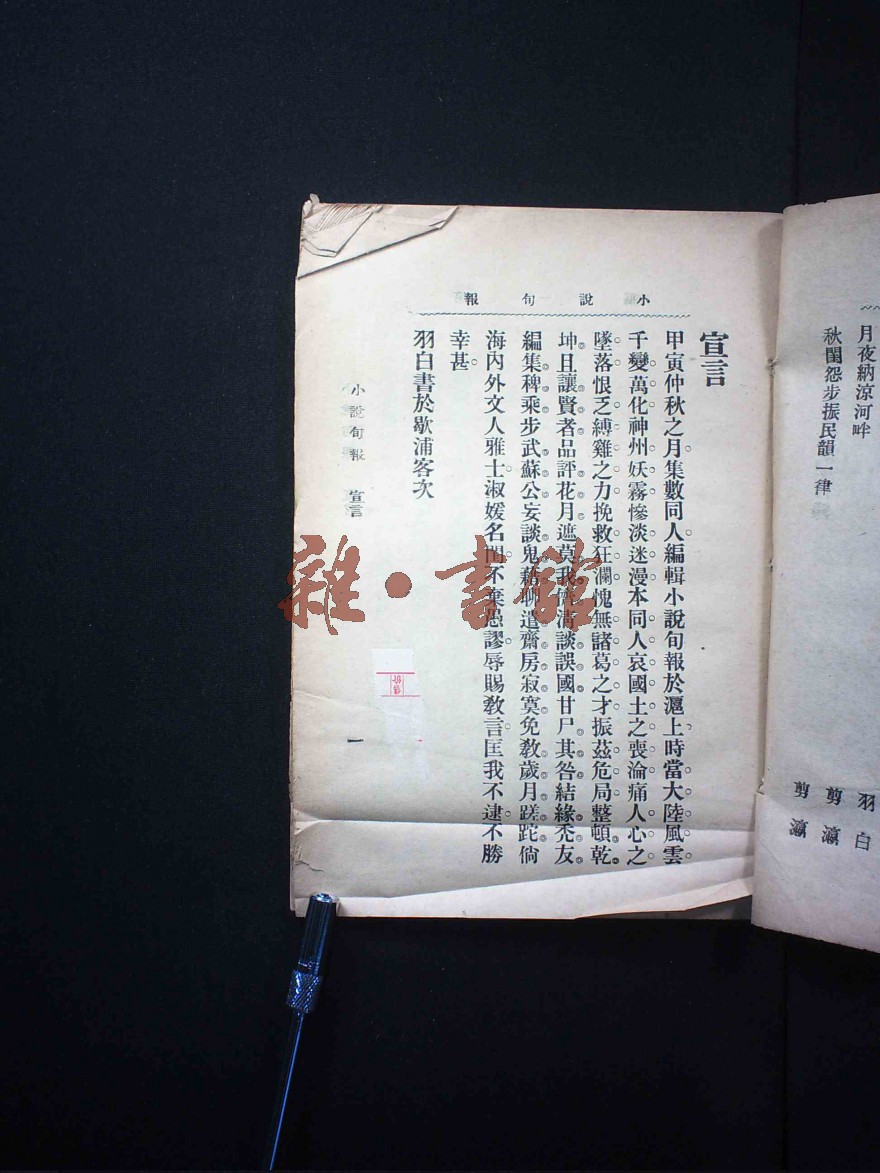 月夜納涼河畔 羽白
秋閨怨步振民韻一律 剪瀛
剪瀛
小說旬報
宣言
甲寅仲秋之月集數同人編輯小說旬報於滬上時當大陸風雲
千變萬化神州妖霧慘淡迷漫本同人哀國土之喪淪痛人心之
墜落恨乏縛雞之力挽救狂瀾愧無諸葛之才振茲危局整頓乾
坤且讓賢者品評花月遮莫我儕清談誤國甘尸其咎結緣禿友
編集稗乘步武蘇公妄談鬼籍聊遣齋房寂寞免教歲月蹉跎倘
海內外文人雅士淑媛名閨不棄愚謬辱賜教言匡我不逮不勝
幸甚
羽白書於歇浦客次
小說旬報 宣言
一
雜·書館
售价